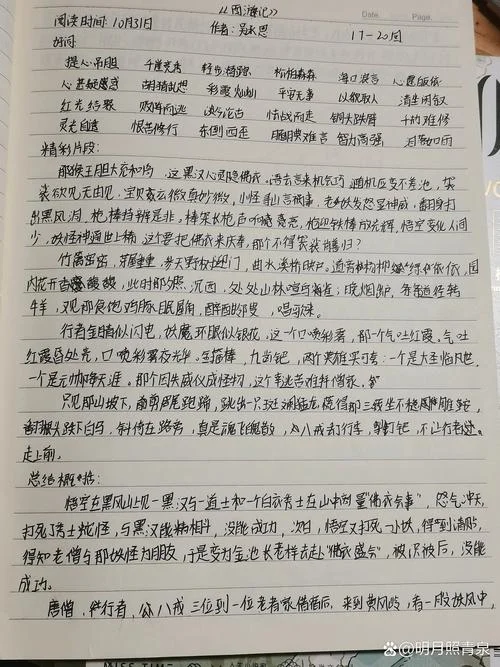 《西游记》 Date. Page.
阅读时间:10月31日 作者:吴承恩 17-20回
好词:
提心吊胆 千崖竞秀 轻步 格森森 海口浪言 心愿皈依
心甚疑惑 胡猜乱想 彩霞 平安无事 以貌取人 清生闲气
红光结聚 败阵而逃 怯战而走 铜头铁脊 千灼难修
灵光自遁 恨苦修行 东倒西歪 腼腆难言 智力高强 泪落如雨
精彩片段:
那猴王胆大充和尚,这黑汉心灵隐佛衣。语去言来机巧,随机应变不差池。袈
裟欲见无由见,宝贝玄微真妙微。小怪寻山言祸事,老妖发怒显神威。翻身打
出黑风洞,枪棒持辨是非。棒架长枪声响亮,枪迎铁棒放光辉。悟空变化人间
少,妖怪神通世上稀。这个要把佛衣来庆寿,那个不得袈裟肯归?
竹篱密密,茅屋重重。参天野树迎门,曲水溪桥映户。道旁杨柳绿依依,园
内花开香馥馥。此时那夕照沉西,处处山林喧鸟雀;晚烟出,条条道径转
牛羊。又见那食饱鸡豚眠屋角,醉酣邻叟唱歌来。
行者金睛似闪电,妖魔环眼似银花。这一个口喷彩雾,那一个气吐红霞。气吐
红霞昏处亮,口喷彩雾夜光华。金箍棒,九齿钯,两个英雄实可夸:一个是大圣临凡世,
一个是元帅降天涯。那个因失威仪成怪物,这个幸逃苦难拜僧家。
只见那山坡下,剪尾跑蹄,跳出一只斑斓猛虎,慌得那三藏坐不稳雕鞍,
翻根头跌下白马,斜倚在路旁,真是魂飞魄散。八戒行李,掣钉钯,不让行者
走上前。
总结概括:
悟空在黑风山上见一黑汉与一道士和一个白衣秀士在山中商量"佛衣会事",怒气冲天,
打死了秀士蛇怪,与黑汉能精相斗,没能成功,次日,悟空又打死一小妖,得到请贴,
得知老僧与那妖怪为朋友,于是变为金池长老样去赴"佛衣盛会",被识破后,没能
成功。
唐僧,孙行者,八戒三位到一位老者家借宿后,来到黄风岭,有一股妖风中,
MISS TIME
百家号/明月照青泉